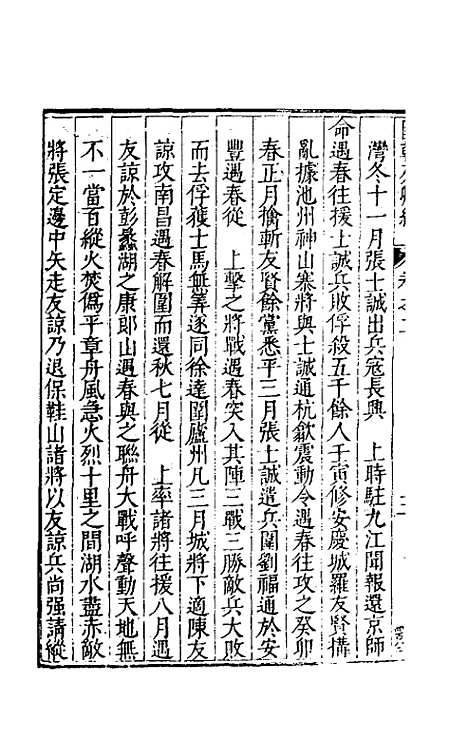 灣冬十一月張士誠出兵寇長興　上時駐九江聞報還京師
命遇春往援士誠兵敗俘殺五千餘人壬寅修安慶城羅友賢搆
亂據池州神山寨將與士誠通杭歙震動令遇春往攻之癸卯
春正月擒斬友賢餘黨悉平三月張士誠遣兵圍劉福通於安
豐遇春從　上擊之將戰遇春突入其陣三戰三勝敵兵大敗
而去俘獲士馬無筭遂同徐達圍廬州凡三月城將下適陳友
諒攻南昌遇春解圍而還秋七月從　上率諸將往援八月遇
友諒於彭蠡湖之康郎山遇春與之聯舟大戰呼聲動天地無
不一當百縱火焚僞平章舟風急火烈十里之間湖水盡赤敵
將張定邊中矢走友諒乃退保鞋山諸將以友諒兵尚强請縱